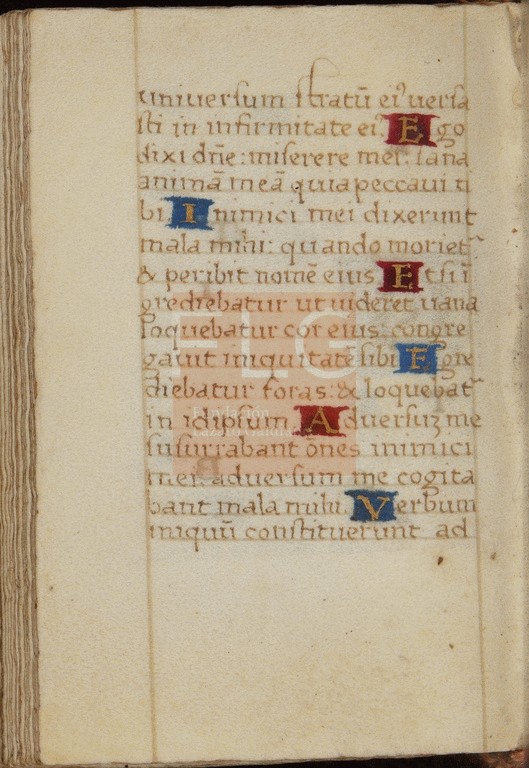 universum stratū ei⁹ versa
sti in infirmitate ei⁹. Ego
dixi dñe: miserere mei: sana
animā meā quia peccavi ti
bi. Inimici mei dixerunt
mala mihi: quando moriet᷑
& peribit nomē eius. Et si ī
grediebatur ut videret vana
loquebatur cor eius: congre
gavit iniquitatē sibi. Egre
diebatur foras: & loquebat᷑
in idipsum. Adversuʒ me
susurrabant oñes inimici
mei: adversum me cogita
bant mala mihi. Verbum
iniquū constituerunt ad
FLG
Fundación
Lázaro Galdiano